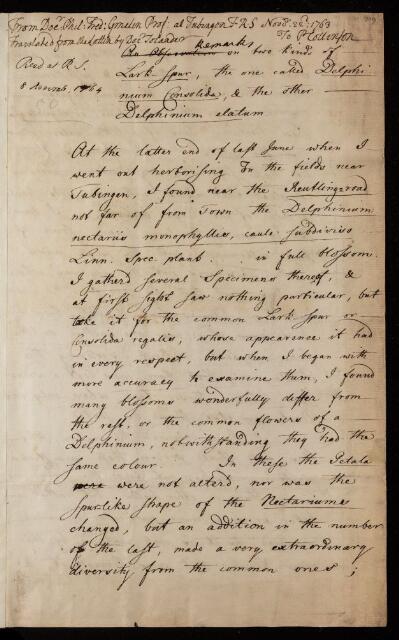 From Doc. Phil: Fred: Gmelin Prof. at Tubingen F.R.S Novbr. 22d. 1763
Translated from the Latin by Doc Solander To P Collinson
Read at R.S.
8 March, 1764
An Observation Remarks on two kinds of
Lark-spur, the one called Delphi
nium Consolida, & the other
Delphinium elatum
At the latter end of last June when I
went out herborising in the fields near
Tubingen, I found near the Reutling-road
not far of from Town the Delphinium
nectariis monophyllis, caule subdiviso
Linn. Spec. plant. in full blossom.
I gatherd several Specimens thereof, &
at first sight saw nothing particular, but
take it for the common Lark spur or
Consolida regalis, whose appearance it had
in every respect, but when I began with
more accuracy to examine them, I found
many blossoms wonderfully differ from
the rest, or the common flowers of a
Delphinium, notwithstanding they had the
same colour. In these the Petala
were were not alterd, nor was the
Spur-like shape of the Nectariums
changed, but an addition in the number
of the last, made a very extraordinary
diversity from the common ones;